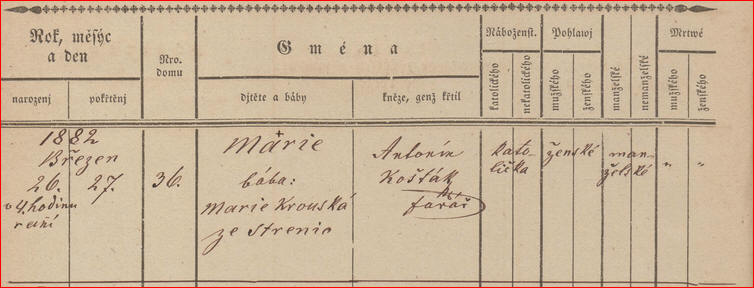 Rok, měsýc
a den
Nro.
domu
Gména
Náboženst.
Pohlawj
Mrtwé
narozenj
pokřtěnj
djtěte a báby
kněze, genž křtil
katolického
nekatolického
mužského
ženského
manželské
nemanželské
mužského
ženského
1882
Březen
26. 27.
v 4. hodinu
ranní
36.
Marie
bába:
Marie Krouská
ze Strenic
Antonín
Košťák
farář
kato-
lička
ženské
man-
želské
„ „